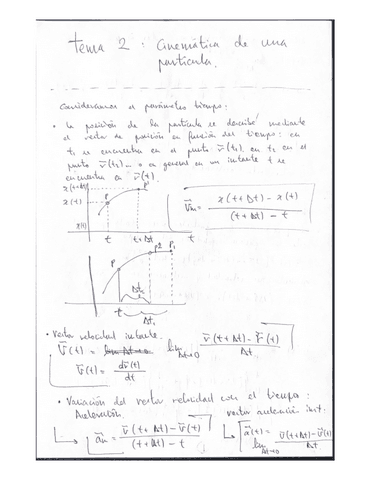 tema 2 : Cinemática de una
partícula.
Consideramos el parámetro tiempo:
• La posición de la partícula se describe mediante
el vector de posición en función del tiempo: en
t₁ se encuentra en el punto r̄(t₁), en t₂ en el
punto r̄(t₂) ... o en general en un instante t se
encuentra en r̄(t).
x(t+Δt)
x(t)
P
P'
t
t+Δt
v̄m = x(t+Δt) - x(t) / (t+Δt) - t
P
P2
P1
Δt₂
t
Δt₁
• Vector velocidad instante.
v̄(t) = lim Δt→0 r̄(t+Δt) - r̄(t) / Δt
v̄(t) = dr̄(t) / dt
• Variación del vector velocidad con el tiempo:
Aceleración.
vector aceleración inst:
ām = v̄(t+Δt) - v̄(t) / (t+Δt) - t
ā(t) = lim Δt→0 v̄(t+Δt) - v̄(t) / Δt